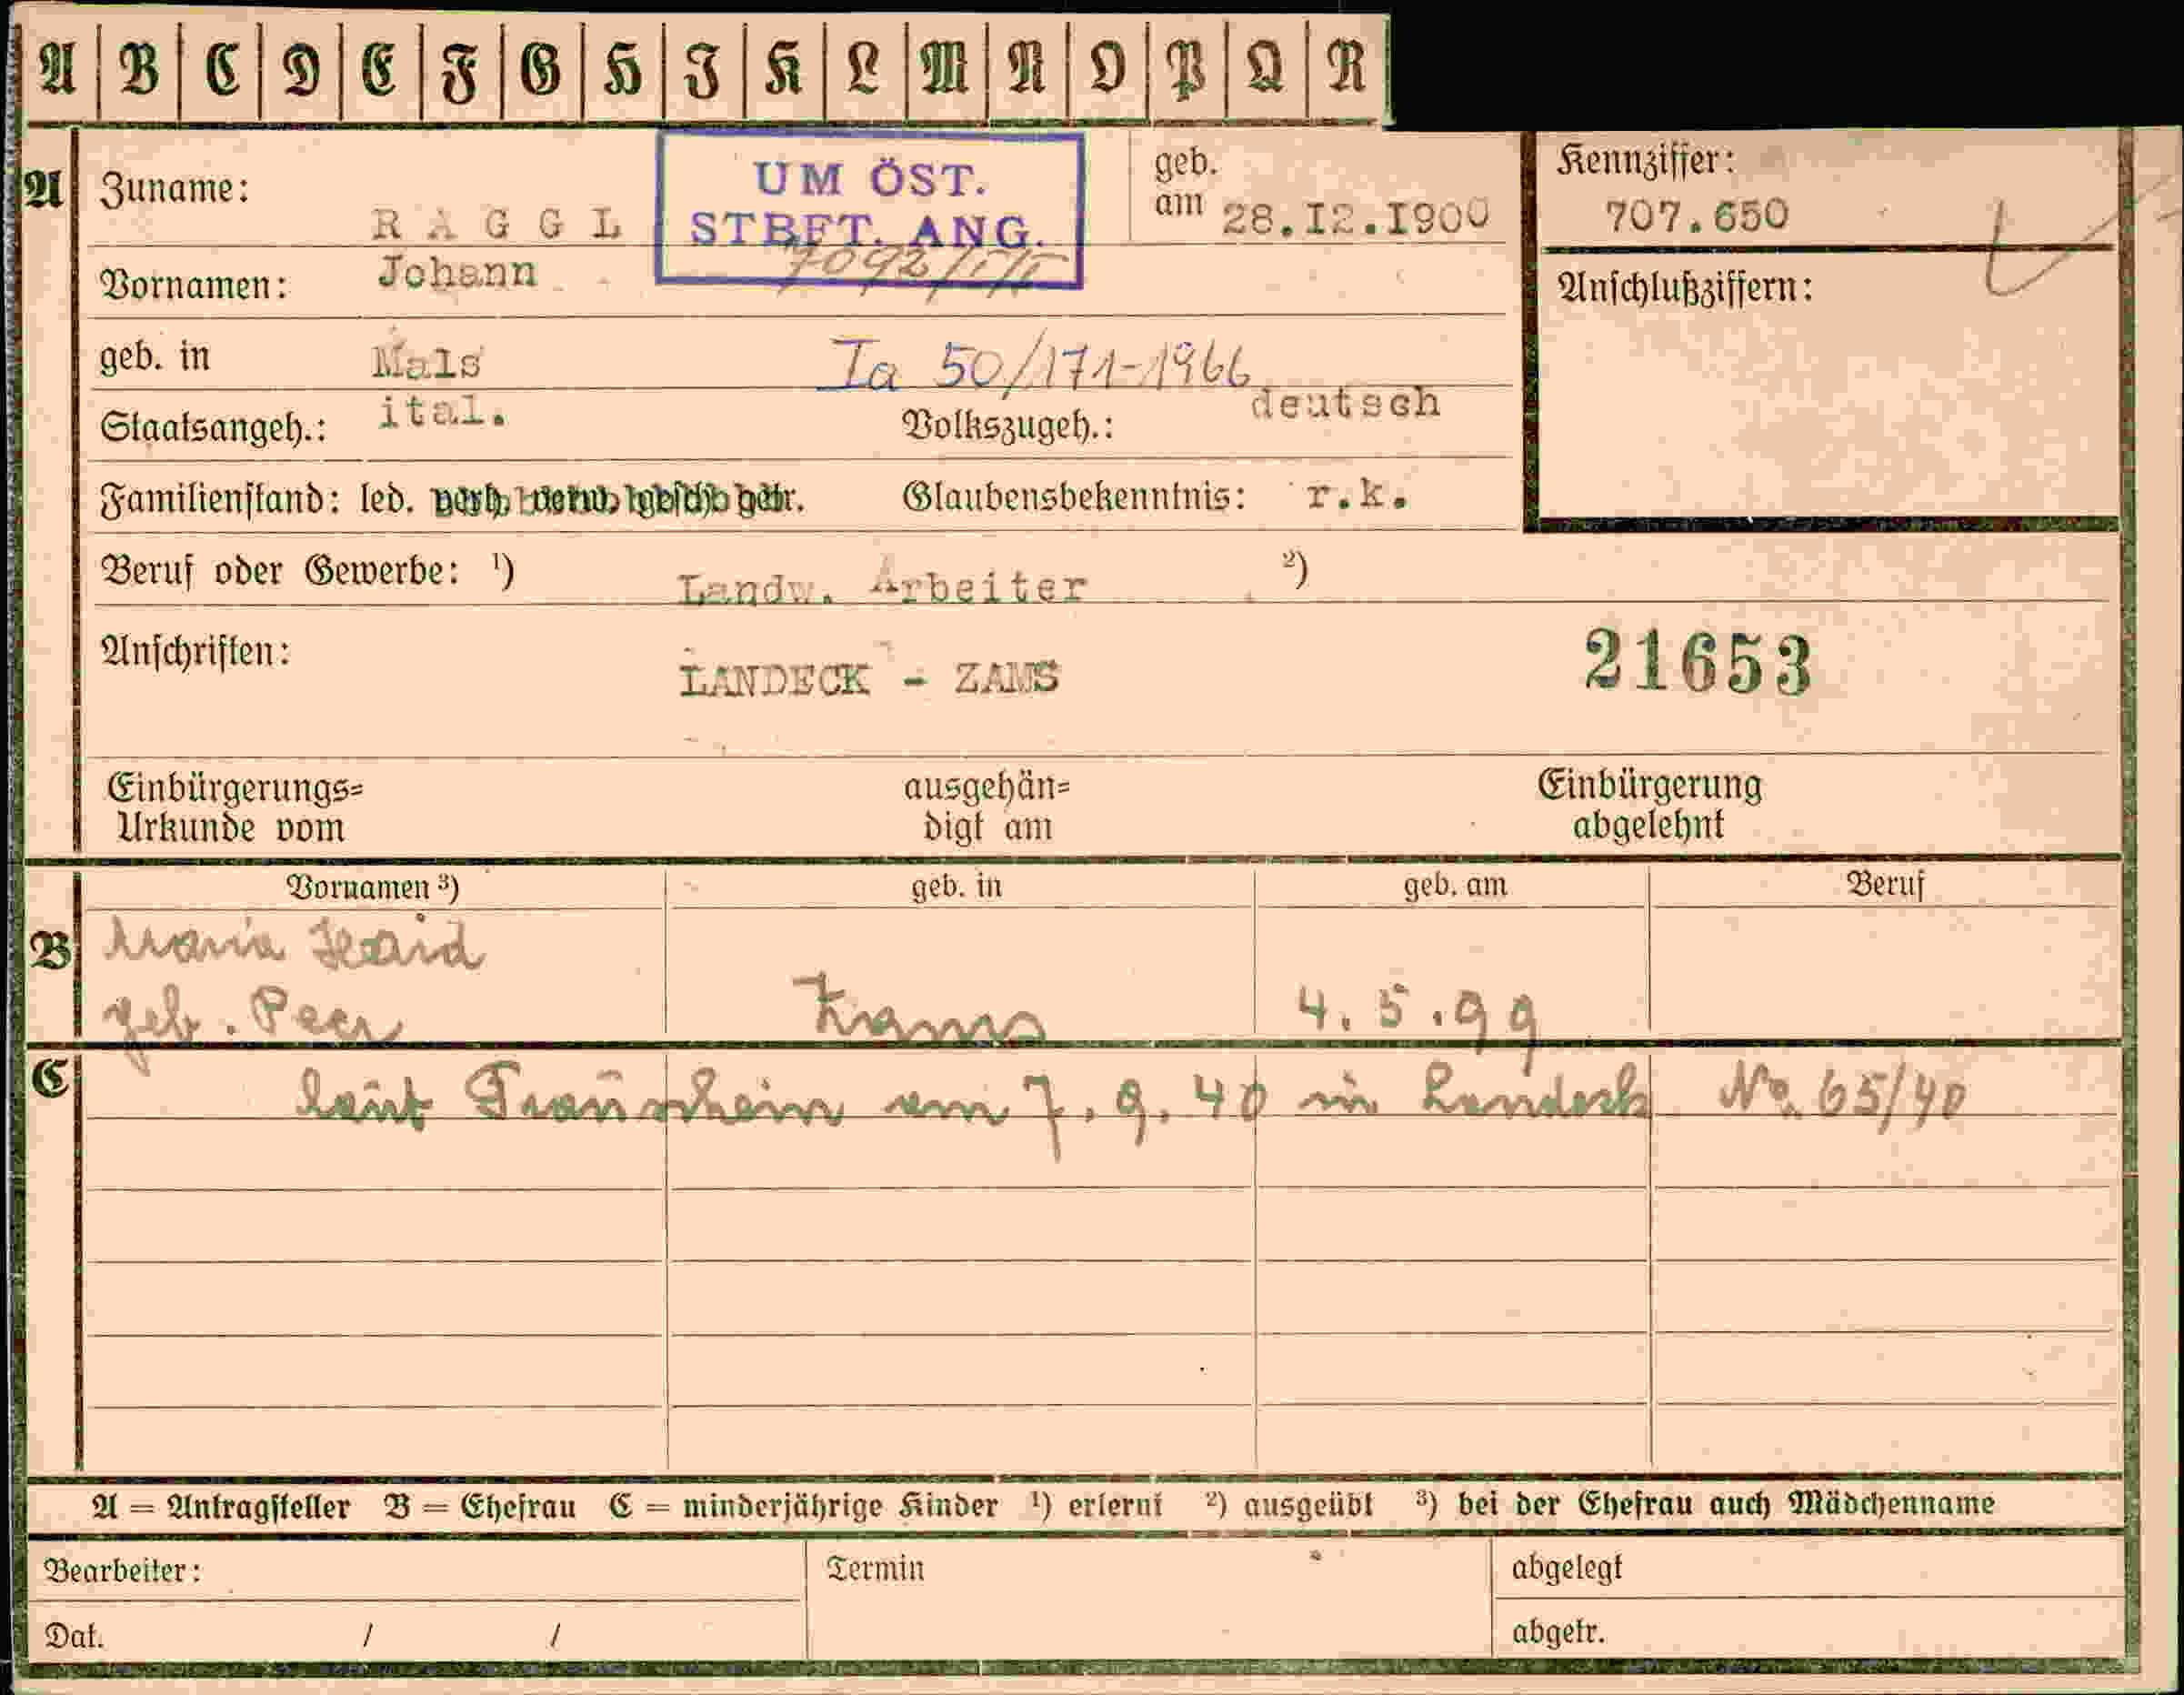 A B C D E F G H I K L M N O P Q R
A Zuname: RAGGL
UM ÖST.
STBFT. ANG.
7092/
geb.
am 28.I2.I900
Kennziffer:
707.650
Vornamen: Johann
Anschlußziffern:
geb. in Mals
Ia 50/171-1966
Staatsangeh.: ital. Volkszugeh.: deutsch
Familienstand: led. Glaubensbekenntnis: r.k.
Beruf oder Gewerbe: ¹) Landw. Arbeiter ²)
Anschriften: LANDECK - ZAMS
21653
Einbürgerungs=
Urkunde vom
ausgehän=
digt am
Einbürgerung
abgelehnt
Vornamen ³) geb. in geb. am Beruf
B Maria Haid
geb. Peer Zams 4.5.99
C laut Trauschein am 7.9.40 in Landeck No. 65/40
A = Antragsteller B = Ehefrau C = minderjährige Kinder ¹) erlernt ²) ausgeübt ³) bei der Ehefrau auch Mädchenname
Bearbeiter: Termin abgelegt
Dat. / / abgetr.